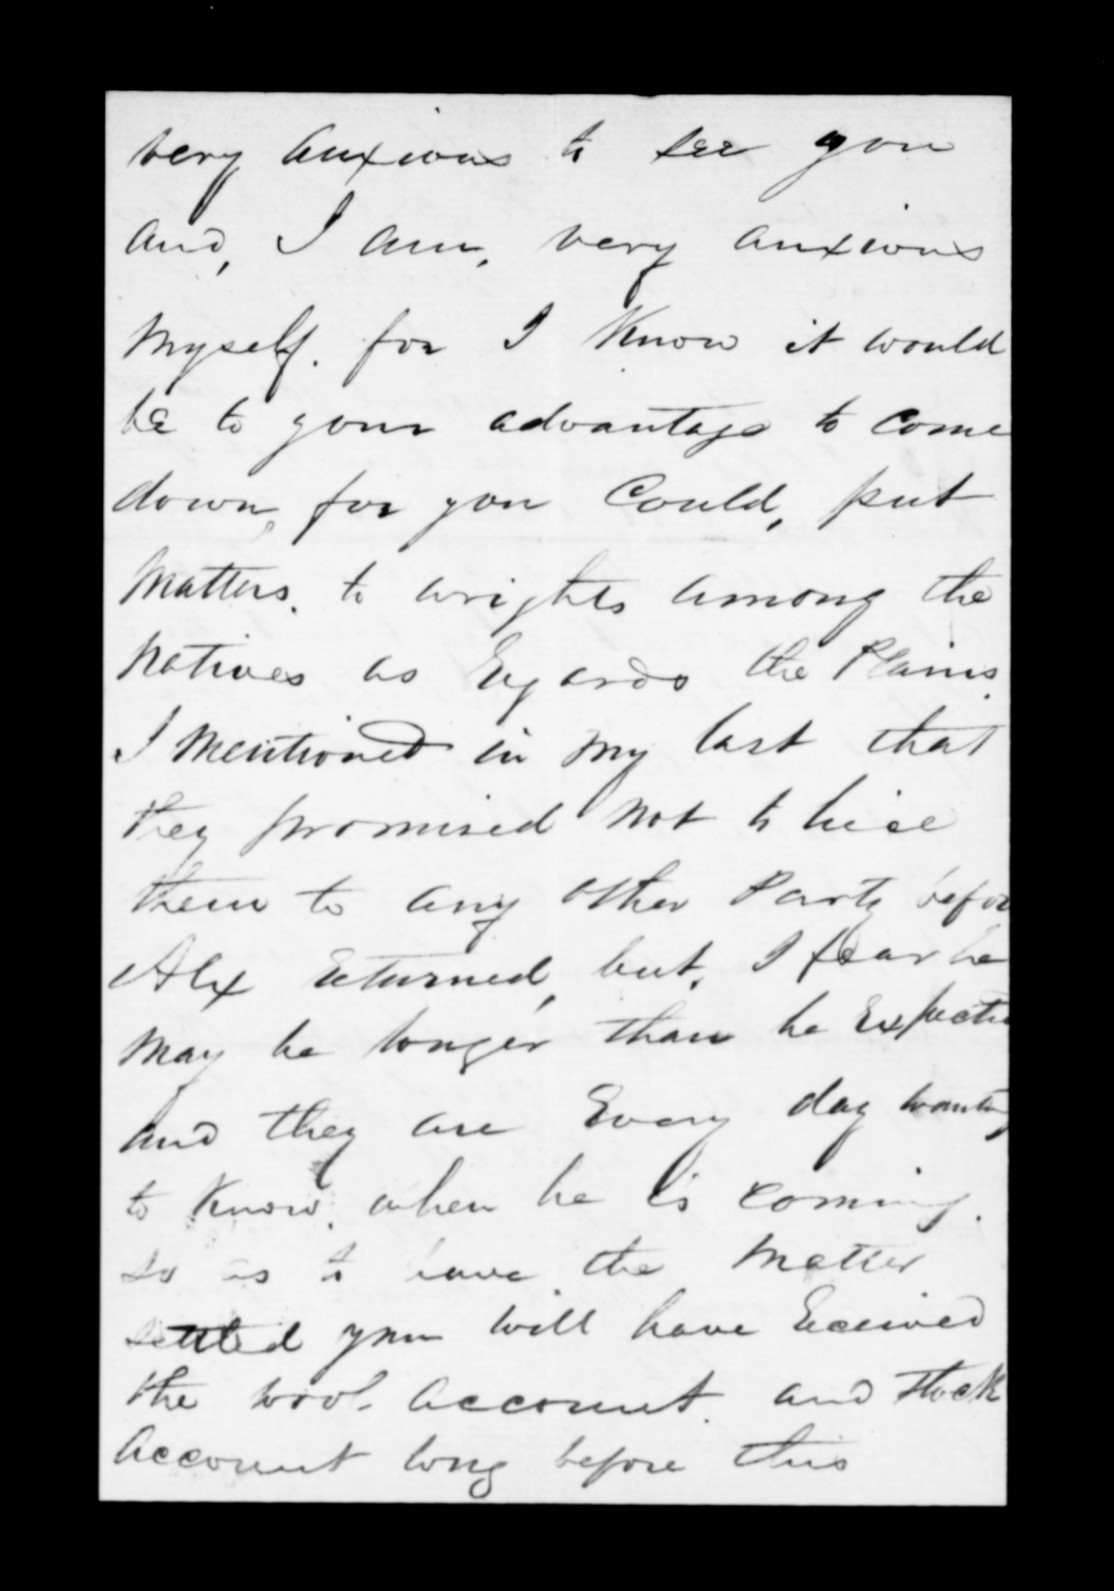 very anxious to see you
and, I am, very anxious
Myself. for I Know it would
be to your advantage to come
down, for you Could, put
Matters. to arights among the
Natives as Regards the Plains.
I Mentioned in my last that
they promised not to hire
them to any other Party before
Alex Returned, but, I fear he
May be longer than he Expects
and they are Every day wanting
to Know, when he is coming.
so as to have the Matter
settled you will have Received
the wool account. and Stock
Account long before this